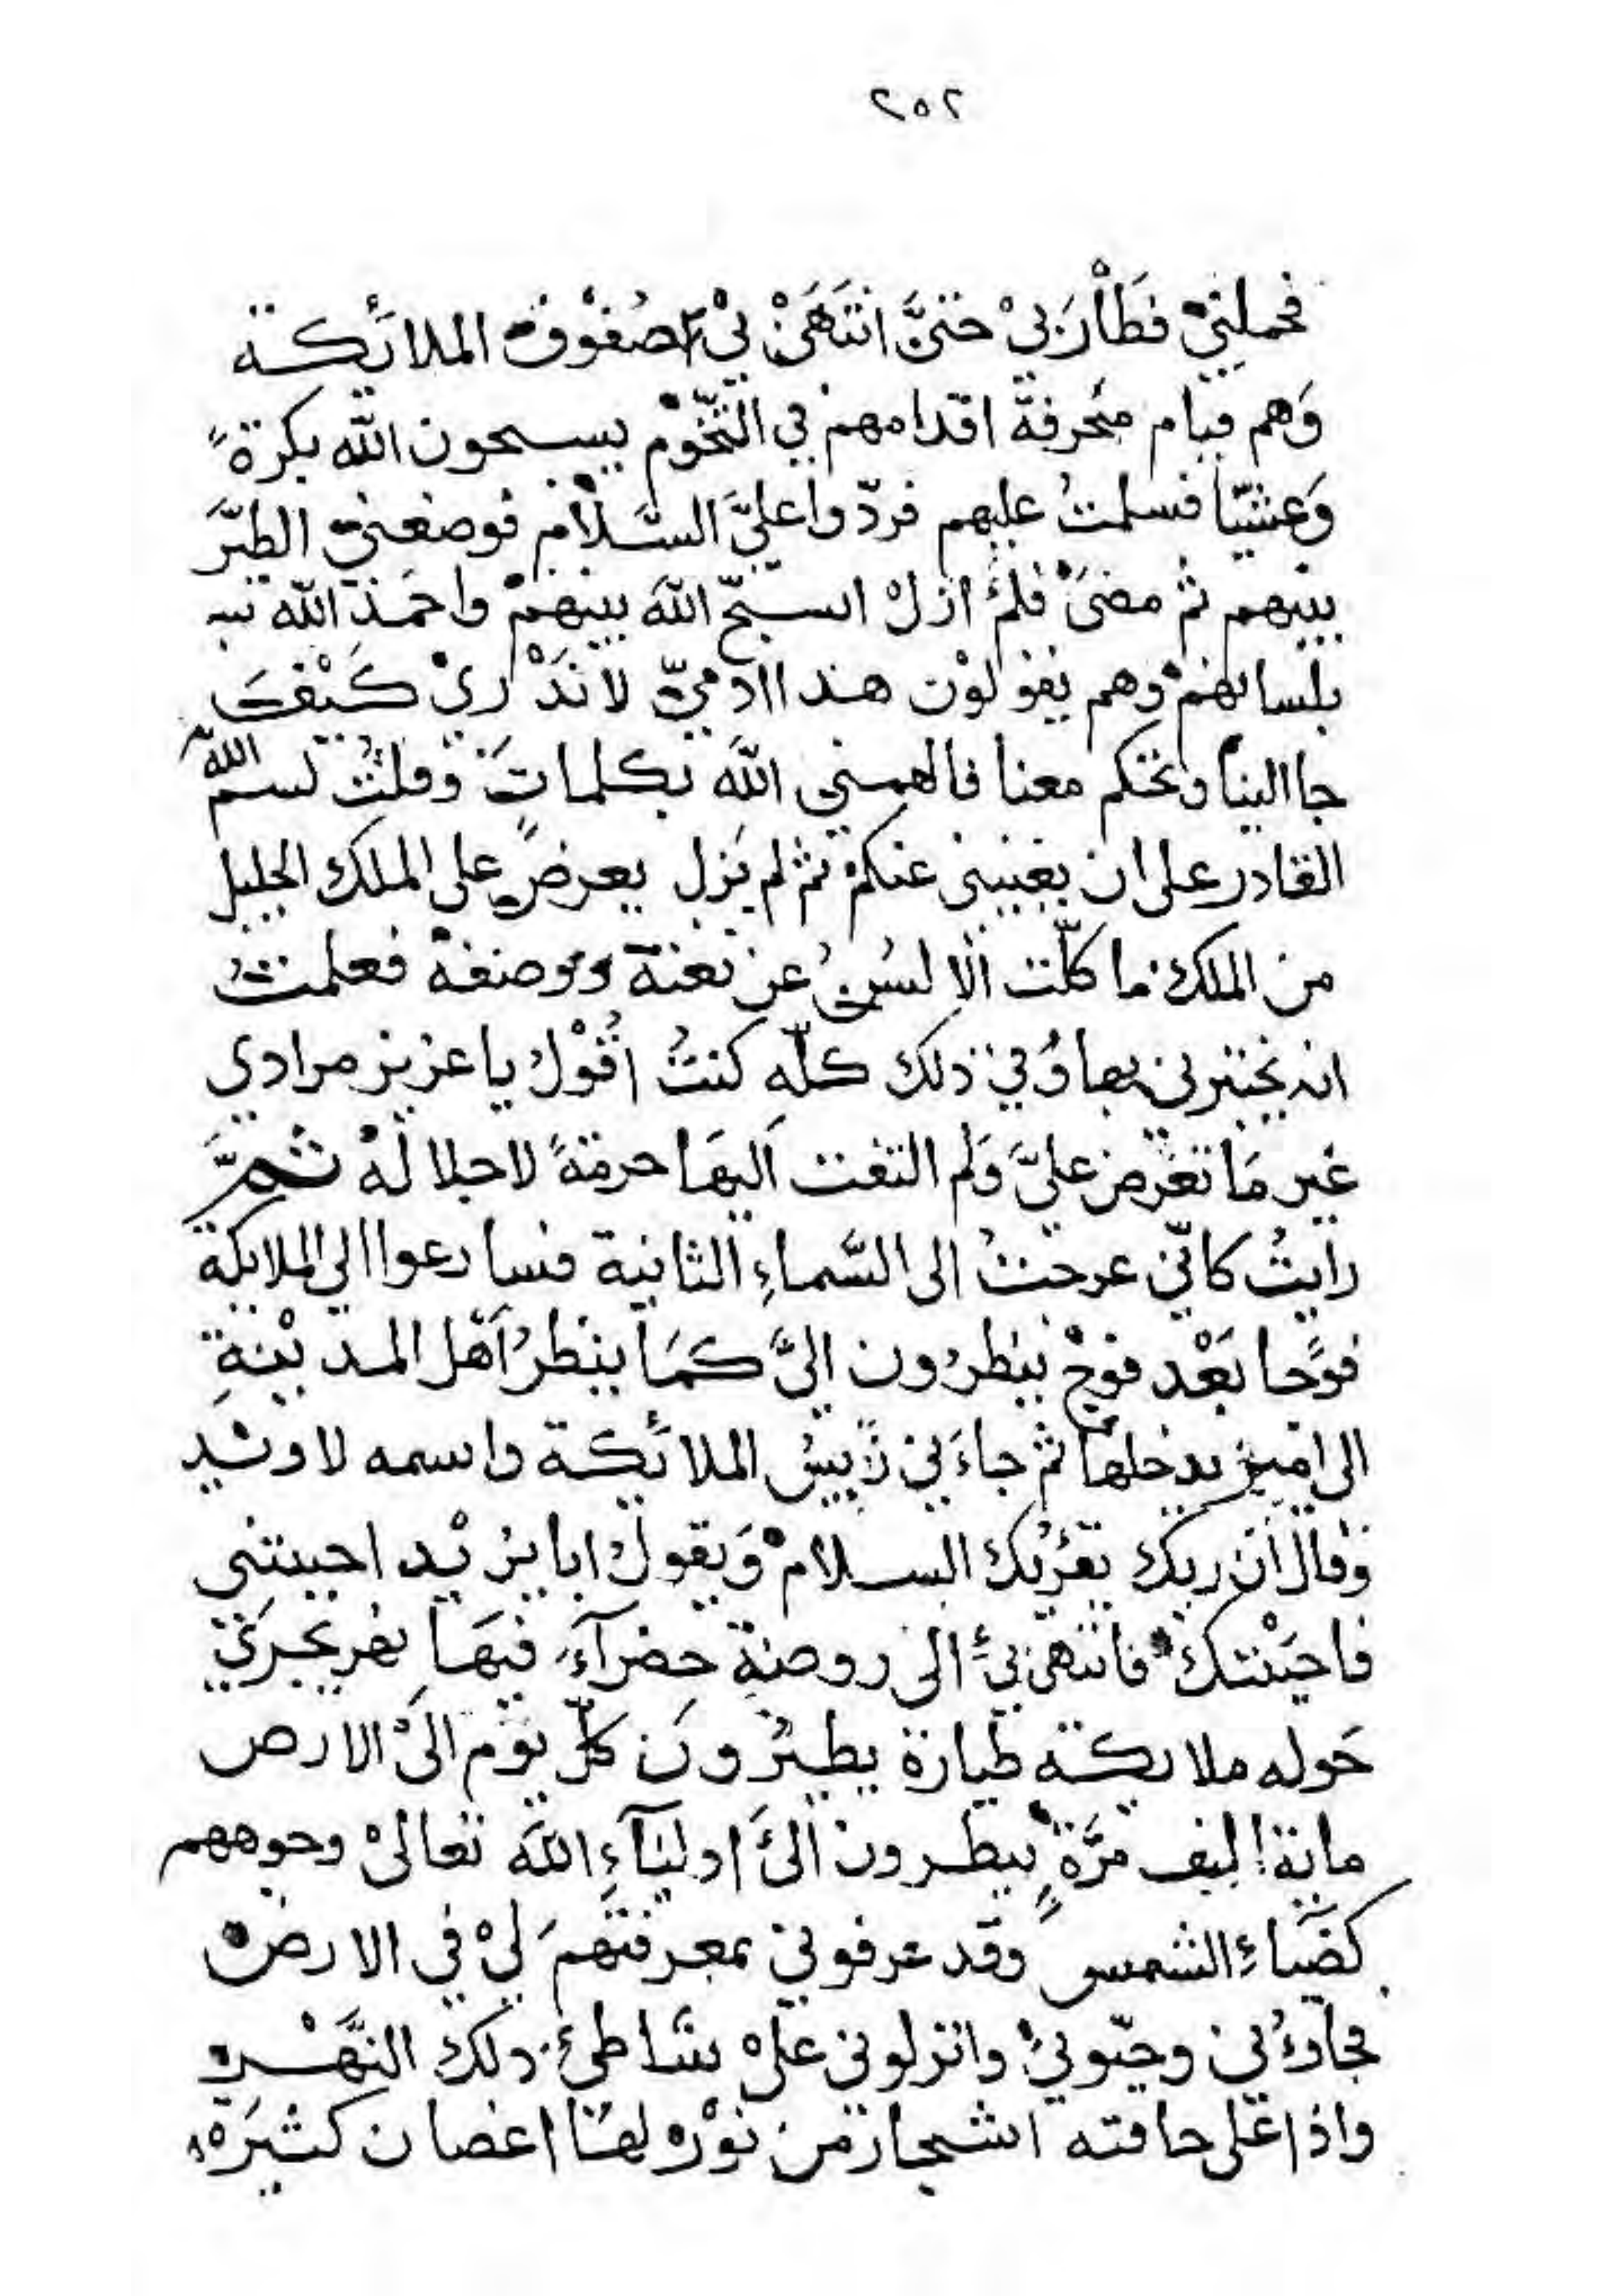 ٢٥٢
فحملني فَطَارَ بِيْ حَتىَّ انتَهَىْ بيْ صُفوْف الملائكة
وَهم قيام متحرفة اقدامهم في التّخْوم يسبحون الله بكرةً
وَعشيّا فسلمتُ عليهم فردّوا عليَّ السَّلام فوضعني الطيَّر
بينهم ثم مضىَ فلمْ ازلْ اسبّح الله بينهمْ واحمَد الله تب
بلسانهمْ وهم يقولوْن هذا الادميّ لا ندْريْ كَيْفَ
جا الينا وتحكم معنا فالهمني الله بكلماتٍ وقلتُ بسم الله
القادر على ان يغنيني عنكم ثم لم يَزل يعرض على الملك الجليل
من الملك ما كلّت الالسُن عن نعته ووصفه فعلمتُ
انه يختبرني بها وُفي ذلك كلّه كنتُ اقُوْل يا عزيز مرادي
غير مَا تعْرض عليَّ وَلم التفت اليهَا حرمةً لاجلاله ثمَّ
رايتُ كانّي عرجتُ الى السَّماءِ الثانية فسارعوا الي الملايكة
فوًجا بَعْد فوج ينظرُون اليَّ كمَا ينظرُ اَهل المديْنةِ
الى امير يدخلها ثم جاءَني رَييس الملائكة واسمه لاوشيد
وَقال انّ ربك يقرُئك السلامْ وَيقول ابا يزيْد احببتني
فاحبَبْتك فانتهى بيْ الى روضة خضرآءَ فيهَا نهر يجري
حَوله ملايكة طيارة يطيْرُونَ كلّ يوْم الىَ الارض
ماية الف مرَّةٍ ينظرون الىَ اوليَآءِ الله تعالىْ وجوههم
كضَياءِ الشمس وقد عرفوني بمعرفتهم ليْ في الارض
فجاوُني وحيّوني وانزلوني علىْ شاطئ ذلك النّهْر
واذا على حافته اشجار من نوْر لهَا اغصان كثيرَه